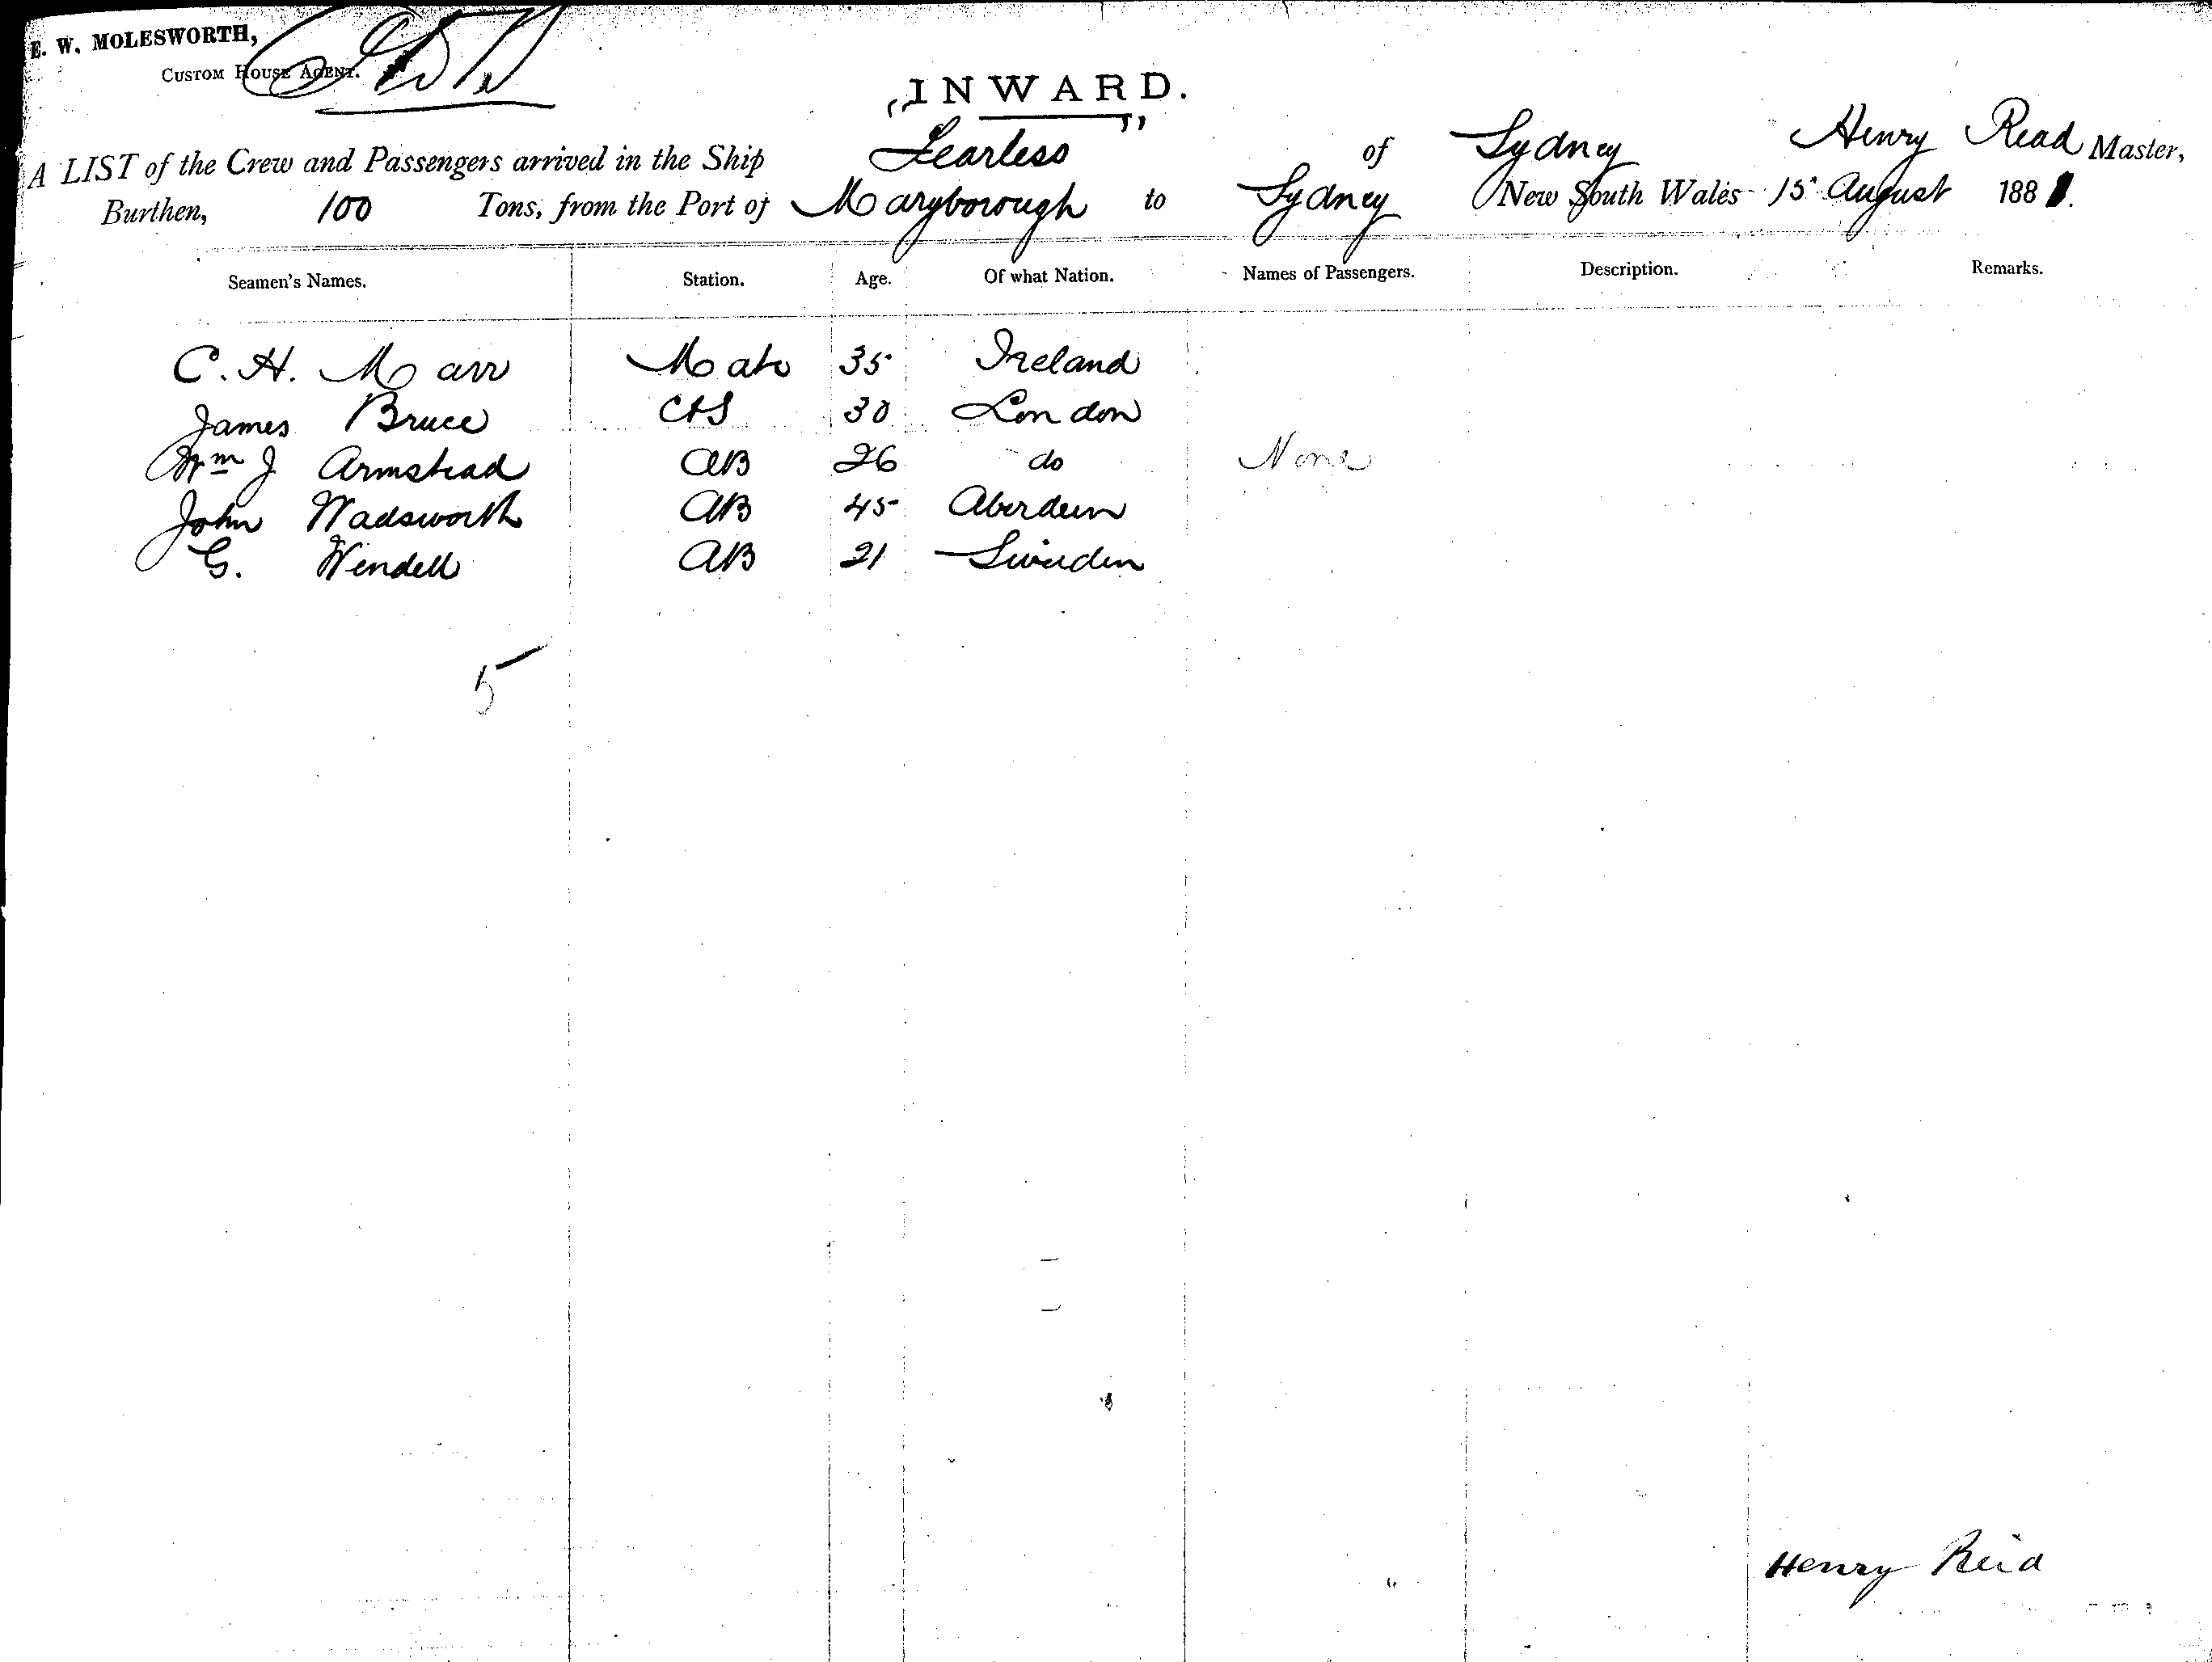 E. W. MOLESWORTH,
CUSTOM HOUSE AGENT.
INWARD.
A LIST of the Crew and Passengers arrived in the Ship "Fearless" of Sydney Henry Read Master,
Burthen, 100 Tons, from the Port of Maryborough to Sydney New South Wales 15 August 1881.
Seamen's Names. Station. Age. Of what Nation. Names of Passengers. Description. Remarks.
C. H. Marr Mate 35 Ireland
James Bruce C&S 30 London
Wm J Armstead AB 26 do None
John Wadsworth AB 45 Aberdeen
G. Wendell AB 21 Sweden
5
Henry Reid